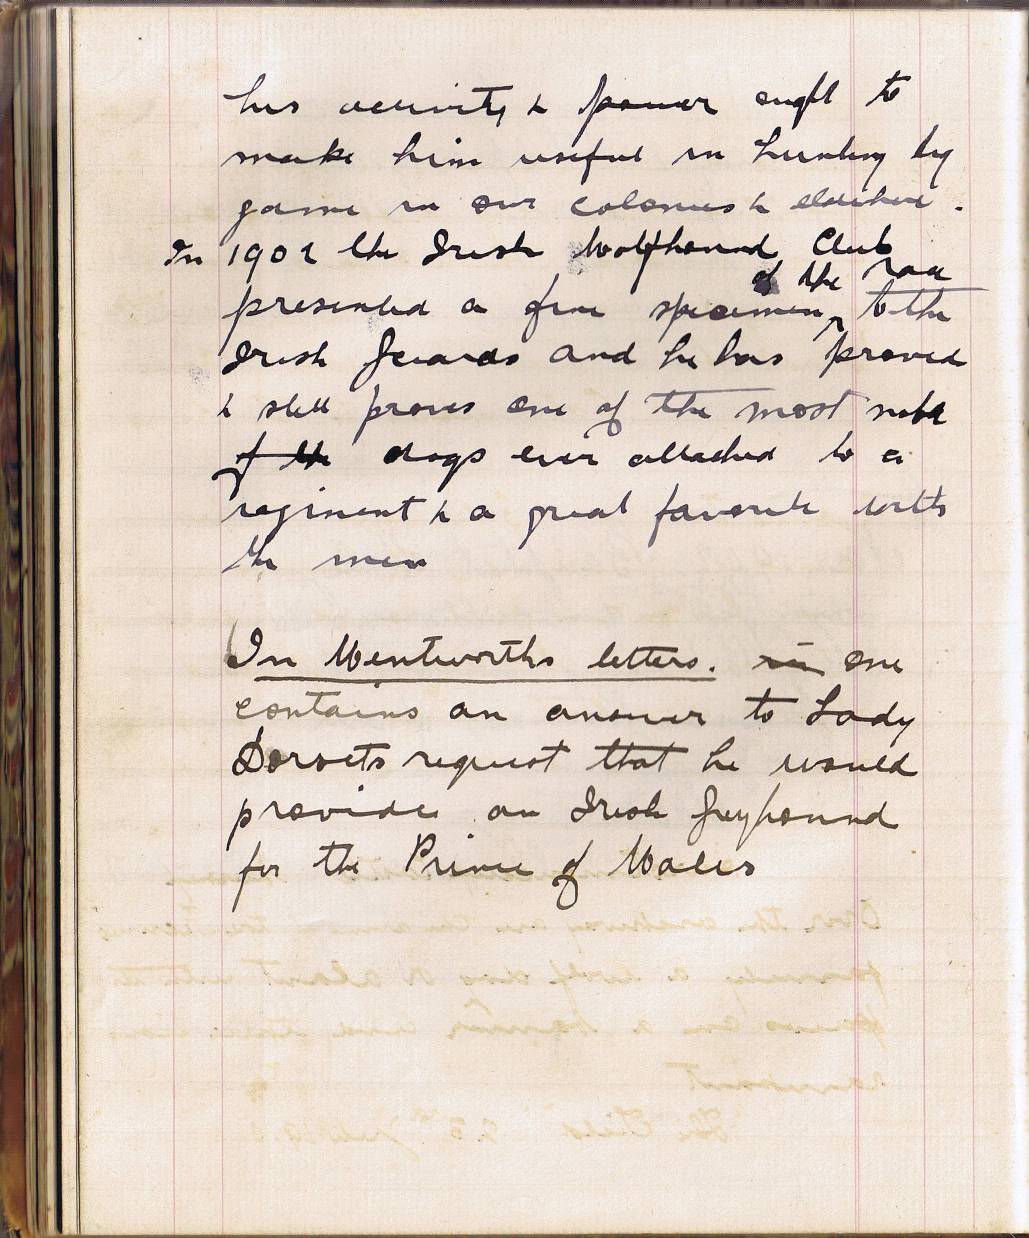 his activity & power ought to
make him useful in hunting big
game in our colonies & elsewhere.
In 1902 the Irish Wolfhound Club
of the race
presented a fine specimen, to the
Irish Guards and he has proved
& still proves one of the most noble
of the dogs ever attached to a
regiment & a great favorite with
the men
In Wentworths letters. in one
contains an answer to Lady
Dorsets request that he would
provide an Irish Greyhound
for the Prince of Wales